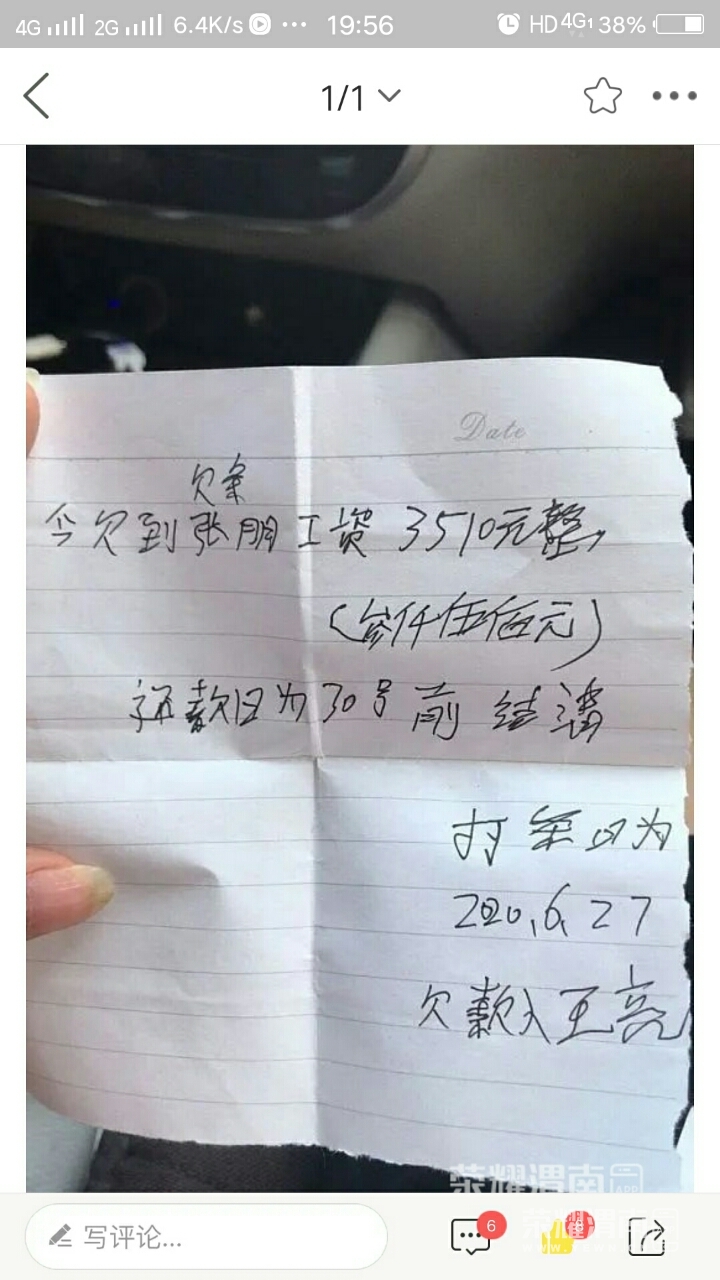 4G 2G 6.4K/s 19:56 HD 4G 38%
1/1
Date
欠条
今欠到张朋工资3510元整,
(叁仟伍佰元)
还款日为30号前 结清
打条日为
2020,6,27
欠款人王亮
荣耀渭南
写评论...
6